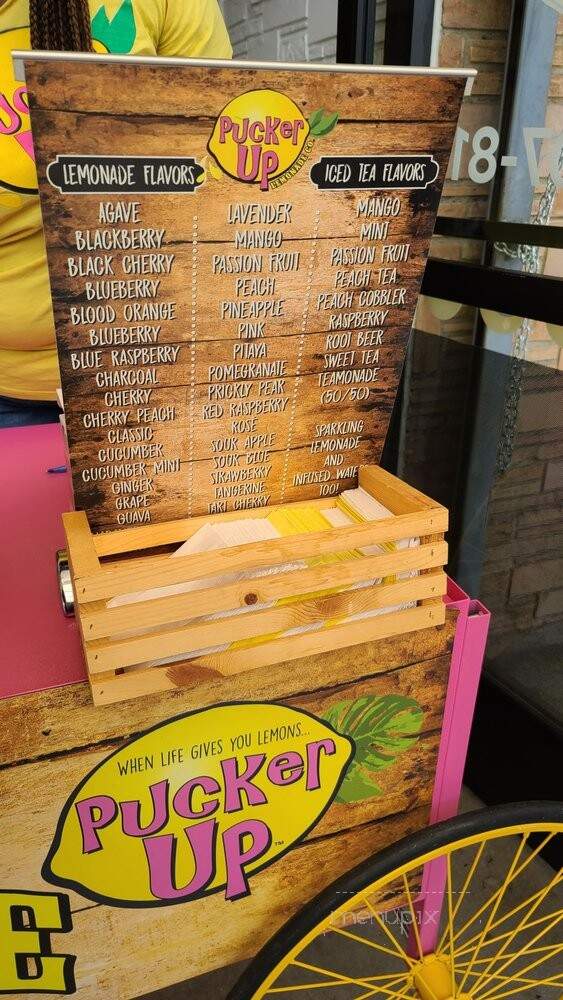 Pucker
Up
LEMONADE CO
LEMONADE FLAVORS
AGAVE
BLACKBERRY
BLACK CHERRY
BLUEBERRY
BLOOD ORANGE
BLUEBERRY
BLUE RASPBERRY
CHARCOAL
CHERRY
CHERRY PEACH
CLASSIC
CUCUMBER
CUCUMBER MINT
GINGER
GRAPE
GUAVA
LAVENDER
MANGO
PASSION FRUIT
PEACH
PINEAPPLE
PINK
PITAYA
POMEGRANATE
PRICKLY PEAR
RED RASPBERRY
ROSE
SOUR APPLE
SOUR BLUE
STRAWBERRY
TANGERINE
TART CHERRY
ICED TEA FLAVORS
MANGO
MINT
PASSION FRUIT
PEACH TEA
PEACH COBBLER
RASPBERRY
ROOT BEER
SWEET TEA
TEAMONADE
(50/50)
SPARKLING
LEMONADE
AND
INFUSED WATE
TOO!
WHEN LIFE GIVES YOU LEMONS...
Pucker
Up™
E
menupix